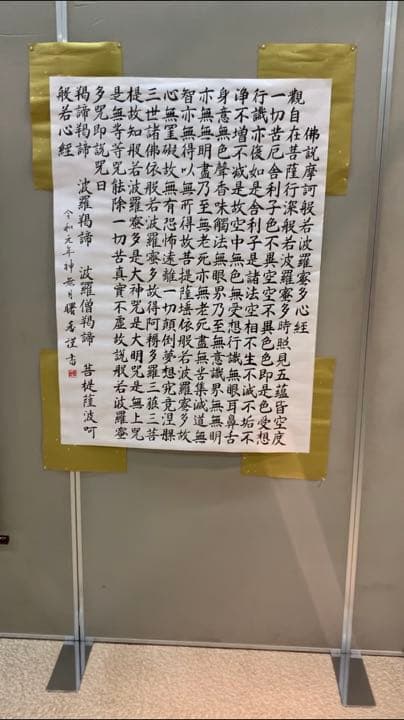 佛説摩訶般若波羅蜜多心經
觀自在菩薩行深般若波羅蜜多時照見五蘊皆空度
一切苦厄舎利子色不異空空不異色色即是色受想
行識亦復如是舎利子是諸法空相不生不滅不垢不
淨不增不減是故空中無色無受想行識無眼耳鼻舌
身意無色聲香味觸法無眼界乃至無意識界無無明
亦無無明盡乃至無老死亦無老死盡無苦集滅道無
智亦無得以無所得故菩提薩埵依般若波羅蜜多故
心無罣礙故無有恐怖遠離一切顛倒夢想究竟涅槃
三世諸佛依般若波羅蜜多故得阿耨多羅三藐三菩
提故知般若波羅蜜多是大神咒是大明咒是無上咒
是無等等咒能除一切苦真實不虛故説般若波羅蜜
多咒即説咒曰
羯諦羯諦 波羅羯諦 波羅僧羯諦 菩提薩婆訶
般若心經
令和元年神無月 謹書